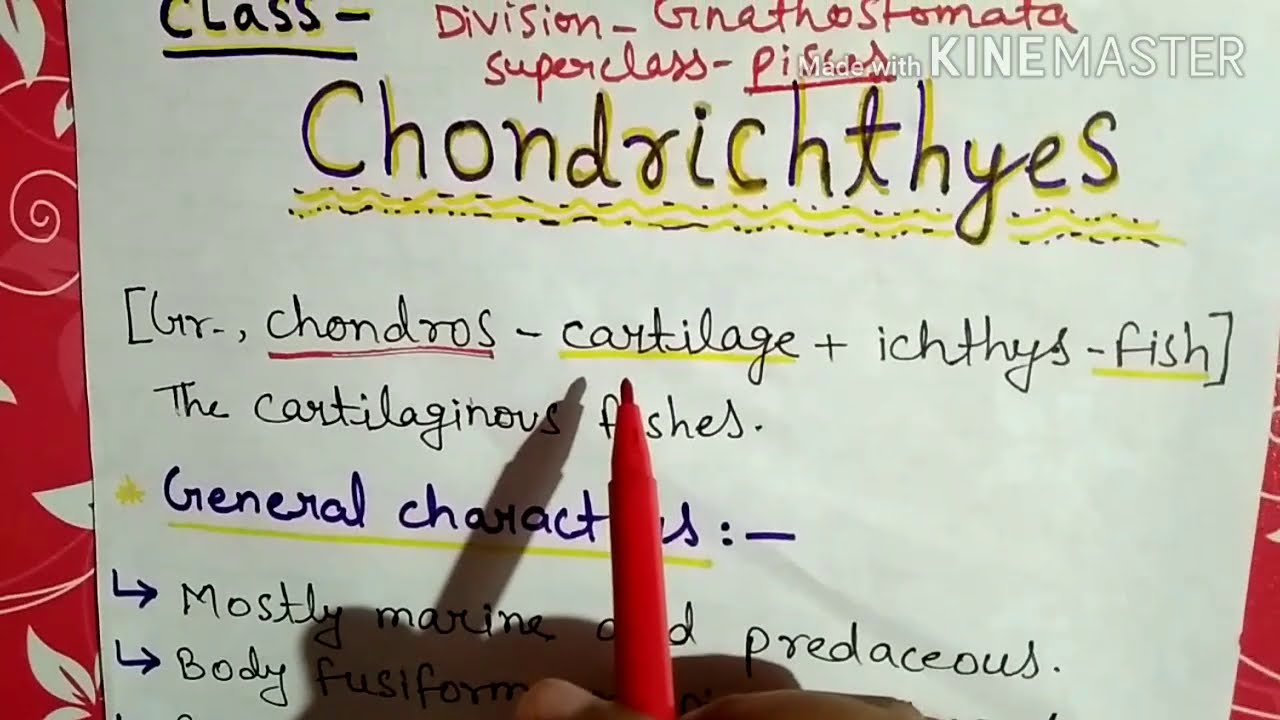 Class-
Division- Gnathostomata
superclass- pisces
Made with KINEMASTER
Chondrichthyes
[Gr., chondros - cartilage + ichthys - fish]
The cartilaginous fishes.
* General characters :-
↳ Mostly marine and predaceous.
↳ Body fusiform